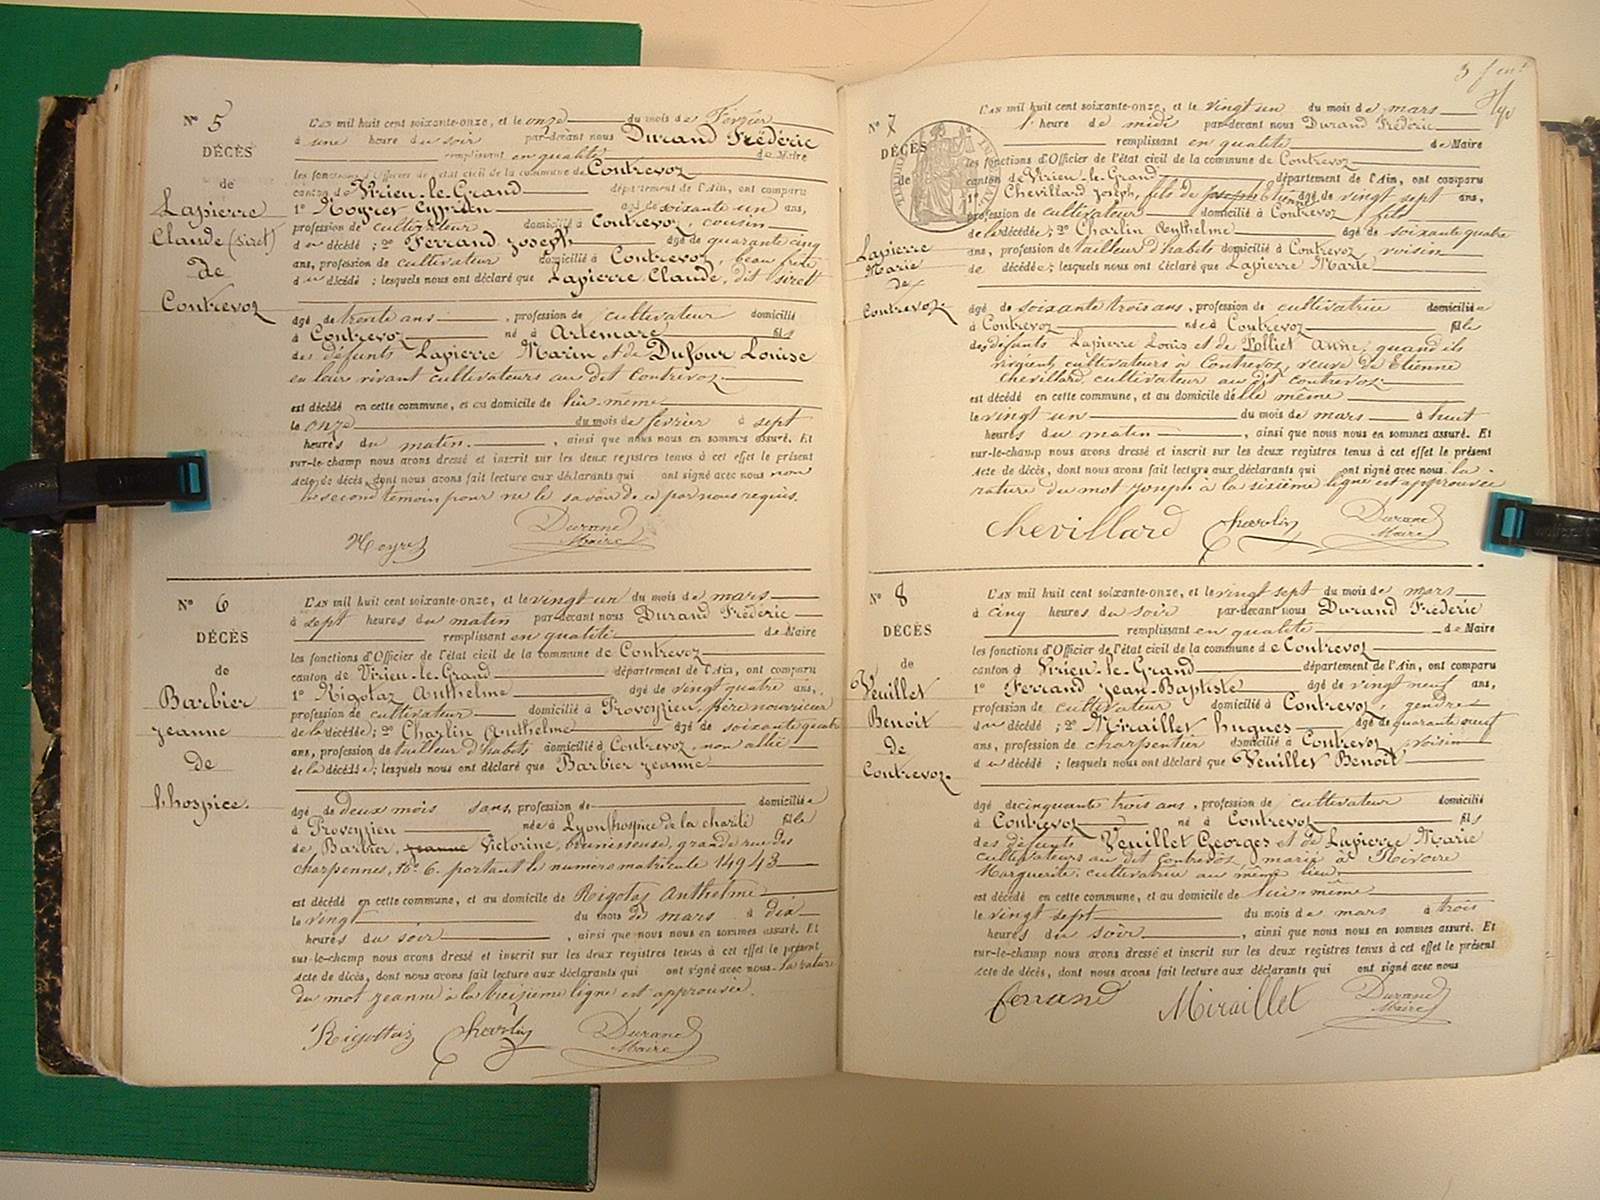 N° 5
DÉCÈS
de
Lapierre
Claude (Siret)
De
Contrevoz
L'AN mil huit cent soixante-onze, et le onze du mois de Février
à une heure du soir par-devant nous Durand Frédéric
remplissant en qualité de Maire
les fonctions d'Officier de l'état civil de la commune de Contrevoz
canton de Virieu-le-Grand département de l'Ain, ont comparu
1° Noyret Cyprien âgé de soixante un ans,
profession de cultivateur domicilié à Contrevoz, cousin
du décédé; 2° Ferrand Joseph âgé de quarante cinq
ans, profession de cultivateur domicilié à Contrevoz, beau frère
du décédé; lesquels nous ont déclaré que Lapierre Claude, dit Siret
âgé de trente ans, profession de cultivateur domicilié
à Contrevoz né à Artemare fils
des défunts Lapierre Marin et de Dufour Louise
en leurs vivant cultivateurs au dit Contrevoz
est décédé en cette commune, et au domicile de lui-même
le onze du mois de février à sept
heures du matin, ainsi que nous nous en sommes assuré. Et
sur-le-champ nous avons dressé et inscrit sur les deux registres tenus à cet effet le présent
acte de décès, dont nous avons fait lecture aux déclarants qui ont signé avec nous non
le second témoin pour ne le savoir de ce par nous requis.
Noyret
Durand
Maire
N° 6
DÉCÈS
de
Barbier
Jeanne
De
l'hospice.
L'AN mil huit cent soixante-onze, et le vingt un du mois de mars
à sept heures du matin par-devant nous Durand Frédéric
remplissant en qualité de Maire
les fonctions d'Officier de l'état civil de la commune de Contrevoz
canton de Virieu-le-Grand département de l'Ain, ont comparu
1° Rigotaz Anthelme âgé de vingt quatre ans,
profession de cultivateur domicilié à Proveyzieu, père nourricier
de la décédée; 2° Charlin Anthelme âgé de soixante quatre
ans, profession de tailleur d'habets domicilié à Contrevoz, non allié
de la décédée; lesquels nous ont déclaré que Barbier Jeanne
âgé de deux mois sans profession de domiciliée
à Proveyzieu née à Lyon (hospice de la charité fille
de Barbier, Jeanne Victorine, brunisseuse, grande rue des
charpennes, N° 6. portant le numéro matricule 14943
est décédé en cette commune, et au domicile de Rigotaz Anthelme
le vingt du mois de mars à dix
heures du soir, ainsi que nous nous en sommes assuré. Et
sur-le-champ nous avons dressé et inscrit sur les deux registres tenus à cet effet le présent
acte de décès, dont nous avons fait lecture aux déclarants qui ont signé avec nous. La rature
du mot Jeanne à la treizième ligne est approuvée.
Rigottaz
Charlin
Durand
Maire
N° 7
DÉCÈS
de
Lapierre
Marie
de
Contrevoz.
L'AN mil huit cent soixante-onze, et le vingt un du mois de mars
l'heure de midi par-devant nous Durand Frédéric
remplissant en qualité de Maire
les fonctions d'Officier de l'état civil de la commune de Contrevoz
canton de Virieu-le-Grand département de l'Ain, ont comparu
1° Chevillard Joseph, fils de Joseph Etienne âgé de vingt sept ans,
profession de cultivateur domicilié à Contrevoz fils
de la décédée; 2° Charlin Anthelme âgé de soixante quatre
ans, profession de tailleur d'habets domicilié à Contrevoz voisin
de décédée; lesquels nous ont déclaré que Lapierre Marie
âgé de soixante trois ans, profession de cultivatrice domiciliée
à Contrevoz née à Contrevoz fille
des défunts Lapierre Louis et de Polliet Anne, quand ils
vivaient, cultivateurs à Contrevoz, veuve de Etienne
Chevillard, cultivateur au dit contrevoz
est décédé en cette commune, et au domicile de elle même
le vingt un du mois de mars à huit
heures du matin, ainsi que nous nous en sommes assuré. Et
sur-le-champ nous avons dressé et inscrit sur les deux registres tenus à cet effet le présent
acte de décès, dont nous avons fait lecture aux déclarants qui ont signé avec nous. la
rature du mot Joseph à la sixième ligne est approuvée
Chevillard
Charlin
Durand
Maire
N° 8
DÉCÈS
de
Veuillet
Benoit
de
Contrevoz.
L'AN mil huit cent soixante-onze, et le vingt sept du mois de mars
à cinq heures du soir par-devant nous Durand Frédéric
remplissant en qualité de Maire
les fonctions d'Officier de l'état civil de la commune de Contrevoz
canton d Virieu-le-Grand département de l'Ain, ont comparu
1° Ferrand Jean-Baptiste âgé de vingt neuf ans,
profession de cultivateur domicilié à Contrevoz, gendre
du décédé; 2° Miraillet hugues âgé de quarante neuf
ans, profession de charpentier domicilié à Contrevoz voisin
du décédé; lesquels nous ont déclaré que Veuillet Benoit
âgé de cinquante trois ans, profession de cultivateur domicilié
à Contrevoz né à Contrevoz fils
des défunts Veuillet Georges et de Lapierre Marie
cultivateurs au dit Contrevoz, marié à
Marguerite, cultivatrice au même lieu
est décédé en cette commune, et au domicile de lui-même
le vingt sept du mois de mars à trois
heures du soir, ainsi que nous nous en sommes assuré. Et
sur-le-champ nous avons dressé et inscrit sur les deux registres tenus à cet effet le présent
acte de décès, dont nous avons fait lecture aux déclarants qui ont signé avec nous
ferrand
Miraillet
Durand
Maire